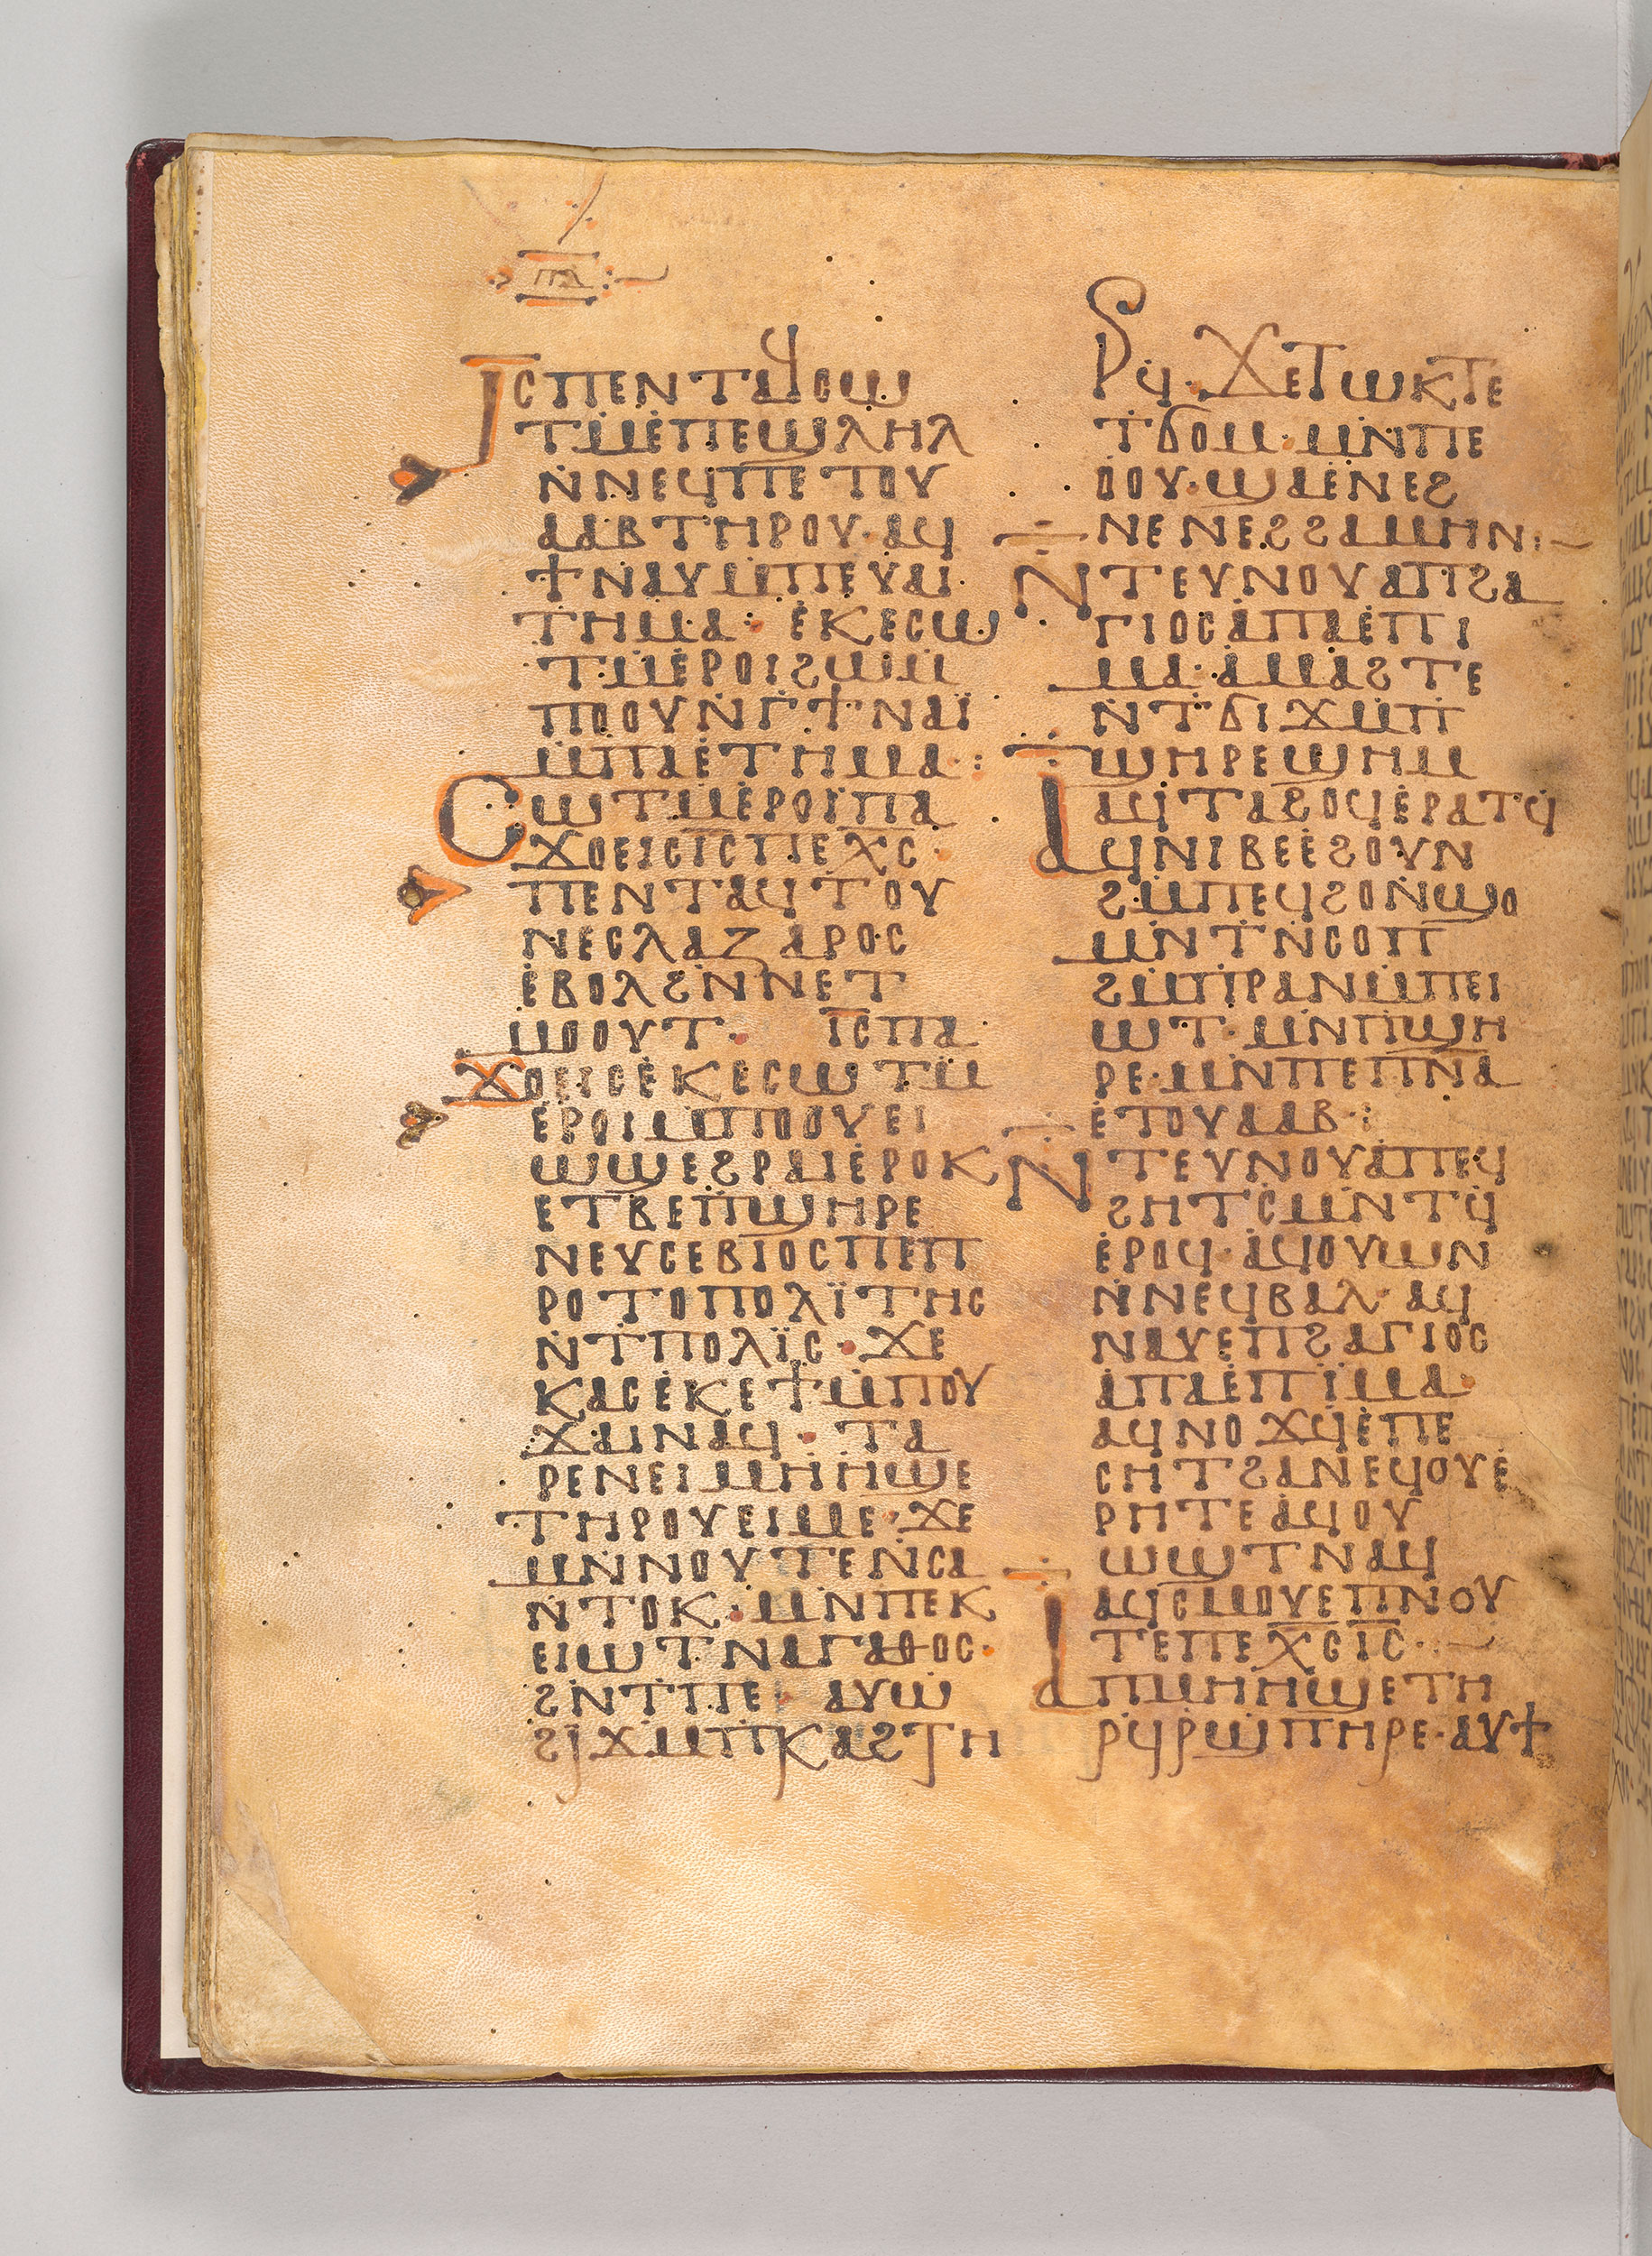 ⲡⲁ
ⲒⲤ ⲡⲉⲛⲧⲁϥⲥⲱ
ⲧⲙⲉⲡⲉϣⲗⲏⲗ
ⲛⲛⲉϥⲡⲉⲧⲟⲩ
ⲁⲁⲃⲧⲏⲣⲟⲩ· ⲁϥ
ϯⲛⲁⲩⲙⲡⲉⲩⲁⲓ
ⲧⲏⲙⲁ: ⲉⲕⲉⲥⲱ
ⲧⲙⲉⲣⲟⲓϩⲱⲙ
ⲡⲟⲟⲩⲛⲅϯⲛⲁⲓ̈
ⲙⲡⲁⲉⲧⲏⲙⲁ:
Ⲥⲱⲧⲙⲉⲣⲟⲓⲡⲁ
ϫⲟⲉⲓⲥⲓ̅ⲥ̅ⲡⲉⲭ̅ⲥ̅
ⲡⲉⲛⲧⲁϥⲧⲟⲩ
ⲛⲉⲥⲗⲁⲍⲁⲣⲟⲥ
ⲉⲃⲟⲗϩⲛⲛⲉⲧ
ⲙⲟⲟⲩⲧ· ⲓ̅ⲥ̅ⲡⲁ
ϫⲟⲉⲓⲥⲉⲕⲉⲥⲱⲧⲙ
ⲉⲣⲟⲓⲙⲡⲟⲟⲩⲉⲓ
ⲱϣⲉϩⲣⲁⲓⲉⲣⲟⲕ
ⲉⲧⲃⲉⲡϣⲏⲣⲉ
ⲛⲉⲩⲥⲉⲃⲓⲟⲥⲡⲉⲡ
ⲣⲟⲧⲟⲡⲟⲗⲓ̈ⲧⲏⲥ
ⲛⲧⲡⲟⲗⲓ̈ⲥ· ϫⲉ
ⲕⲁⲥⲉⲕⲉϯⲙⲡⲟⲩ
ϫⲁⲓⲛⲁϥ· ⲧⲁ
ⲣⲉⲛⲉⲓⲙⲏⲏϣⲉ
ⲧⲏⲣⲟⲩⲉⲓⲙⲉ· ϫⲉ
ⲙⲛⲛⲟⲩⲧⲉⲛⲥⲁ
ⲛⲧⲟⲕ· ⲙⲛⲡⲉⲕ
ⲉⲓⲱⲧⲛⲁⲅⲁⲑⲟⲥ·
ϩⲛⲧⲡⲉ· ⲁⲩⲱ
ϩⲓϫⲙⲡⲕⲁϩⲧⲏ
ⲣϥ· ϫⲉⲧⲱⲕⲧⲉ
ⲧϭⲟⲙ· ⲙⲛⲡⲉ
ⲟⲟⲩ· ϣⲁⲉⲛⲉϩ
ⲛⲉⲛⲉϩϩⲁⲙⲏⲛ:
Ⲛⲧⲉⲩⲛⲟⲩⲁⲡϩⲁ
ⲅⲓⲟⲥⲁⲡⲁⲉⲡⲓ
ⲙⲁ· ⲁⲙⲁϩⲧⲉ
ⲛⲧϭⲓϫⲙⲡ
ϣⲏⲣⲉϣⲏⲙ
ⲁϥⲧⲁϩⲟϥⲉⲣⲁⲧϥ
Ⲁϥⲛⲓⲃⲉⲉϩⲟⲩⲛ
ϩⲙⲡⲉϥϩⲟⲛϣⲟ
ⲙⲛⲧⲛⲥⲟⲡ
ϩⲙⲡⲣⲁⲛⲙⲡⲉⲓ
ⲱⲧ· ⲙⲛⲡϣⲏ
ⲣⲉ· ⲙⲛⲡⲉⲡ̅ⲛ̅ⲁ̅
ⲉⲧⲟⲩⲁⲁⲃ:
Ⲛⲧⲉⲩⲛⲟⲩⲁⲡⲉϥ
ϩⲏⲧⲥⲙⲛⲧϥ
ⲉⲣⲟϥ· ⲁϥⲟⲩⲱⲛ
ⲛⲛⲉϥⲃⲁⲗ· ⲁϥ
ⲛⲁⲩⲉⲡϩⲁⲅⲓⲟⲥ
ⲁⲡⲁⲉⲡⲓ̈ⲙⲁ·
ⲁϥⲛⲟϫϥⲉⲡⲉ
ⲥⲏⲧϩⲁⲛⲉϥⲟⲩⲉ
ⲣⲏⲧⲉⲁϥⲟⲩ
ⲱϣⲧⲛⲁϥ
ⲁϥⲥⲙⲟⲩⲉⲡⲛⲟⲩ
ⲧⲉⲡⲉⲭ̅ⲥ̅ⲓ̅ⲥ̅·
Ⲁⲡⲙⲏⲏϣⲉⲧⲏ
ⲣϥⲣϣⲡⲏⲣⲉ· ⲁⲩϯ